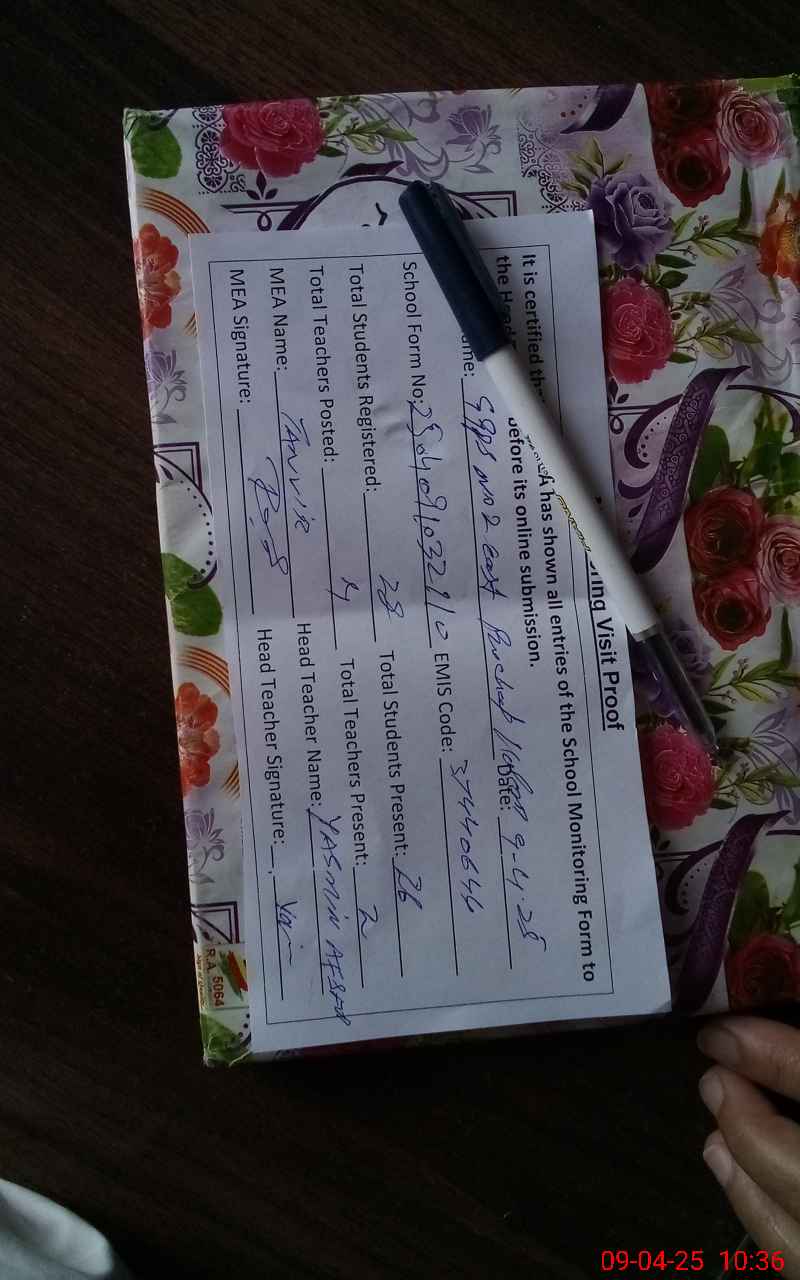 ring Visit Proof
It is certified that A has shown all entries of the School Monitoring Form to
the Head before its online submission.
ame: GGPS No 2 East Date: 9-4-25
School Form No: 2504091032110 EMIS Code: 37440644
Total Students Registered: 28 Total Students Present: 26
Total Teachers Posted: 4 Total Teachers Present: 2
MEA Name: TANVIR Head Teacher Name: YASMIN AFSHAN
MEA Signature: Head Teacher Signature:
R.A. 5064
09-04-25 10:36